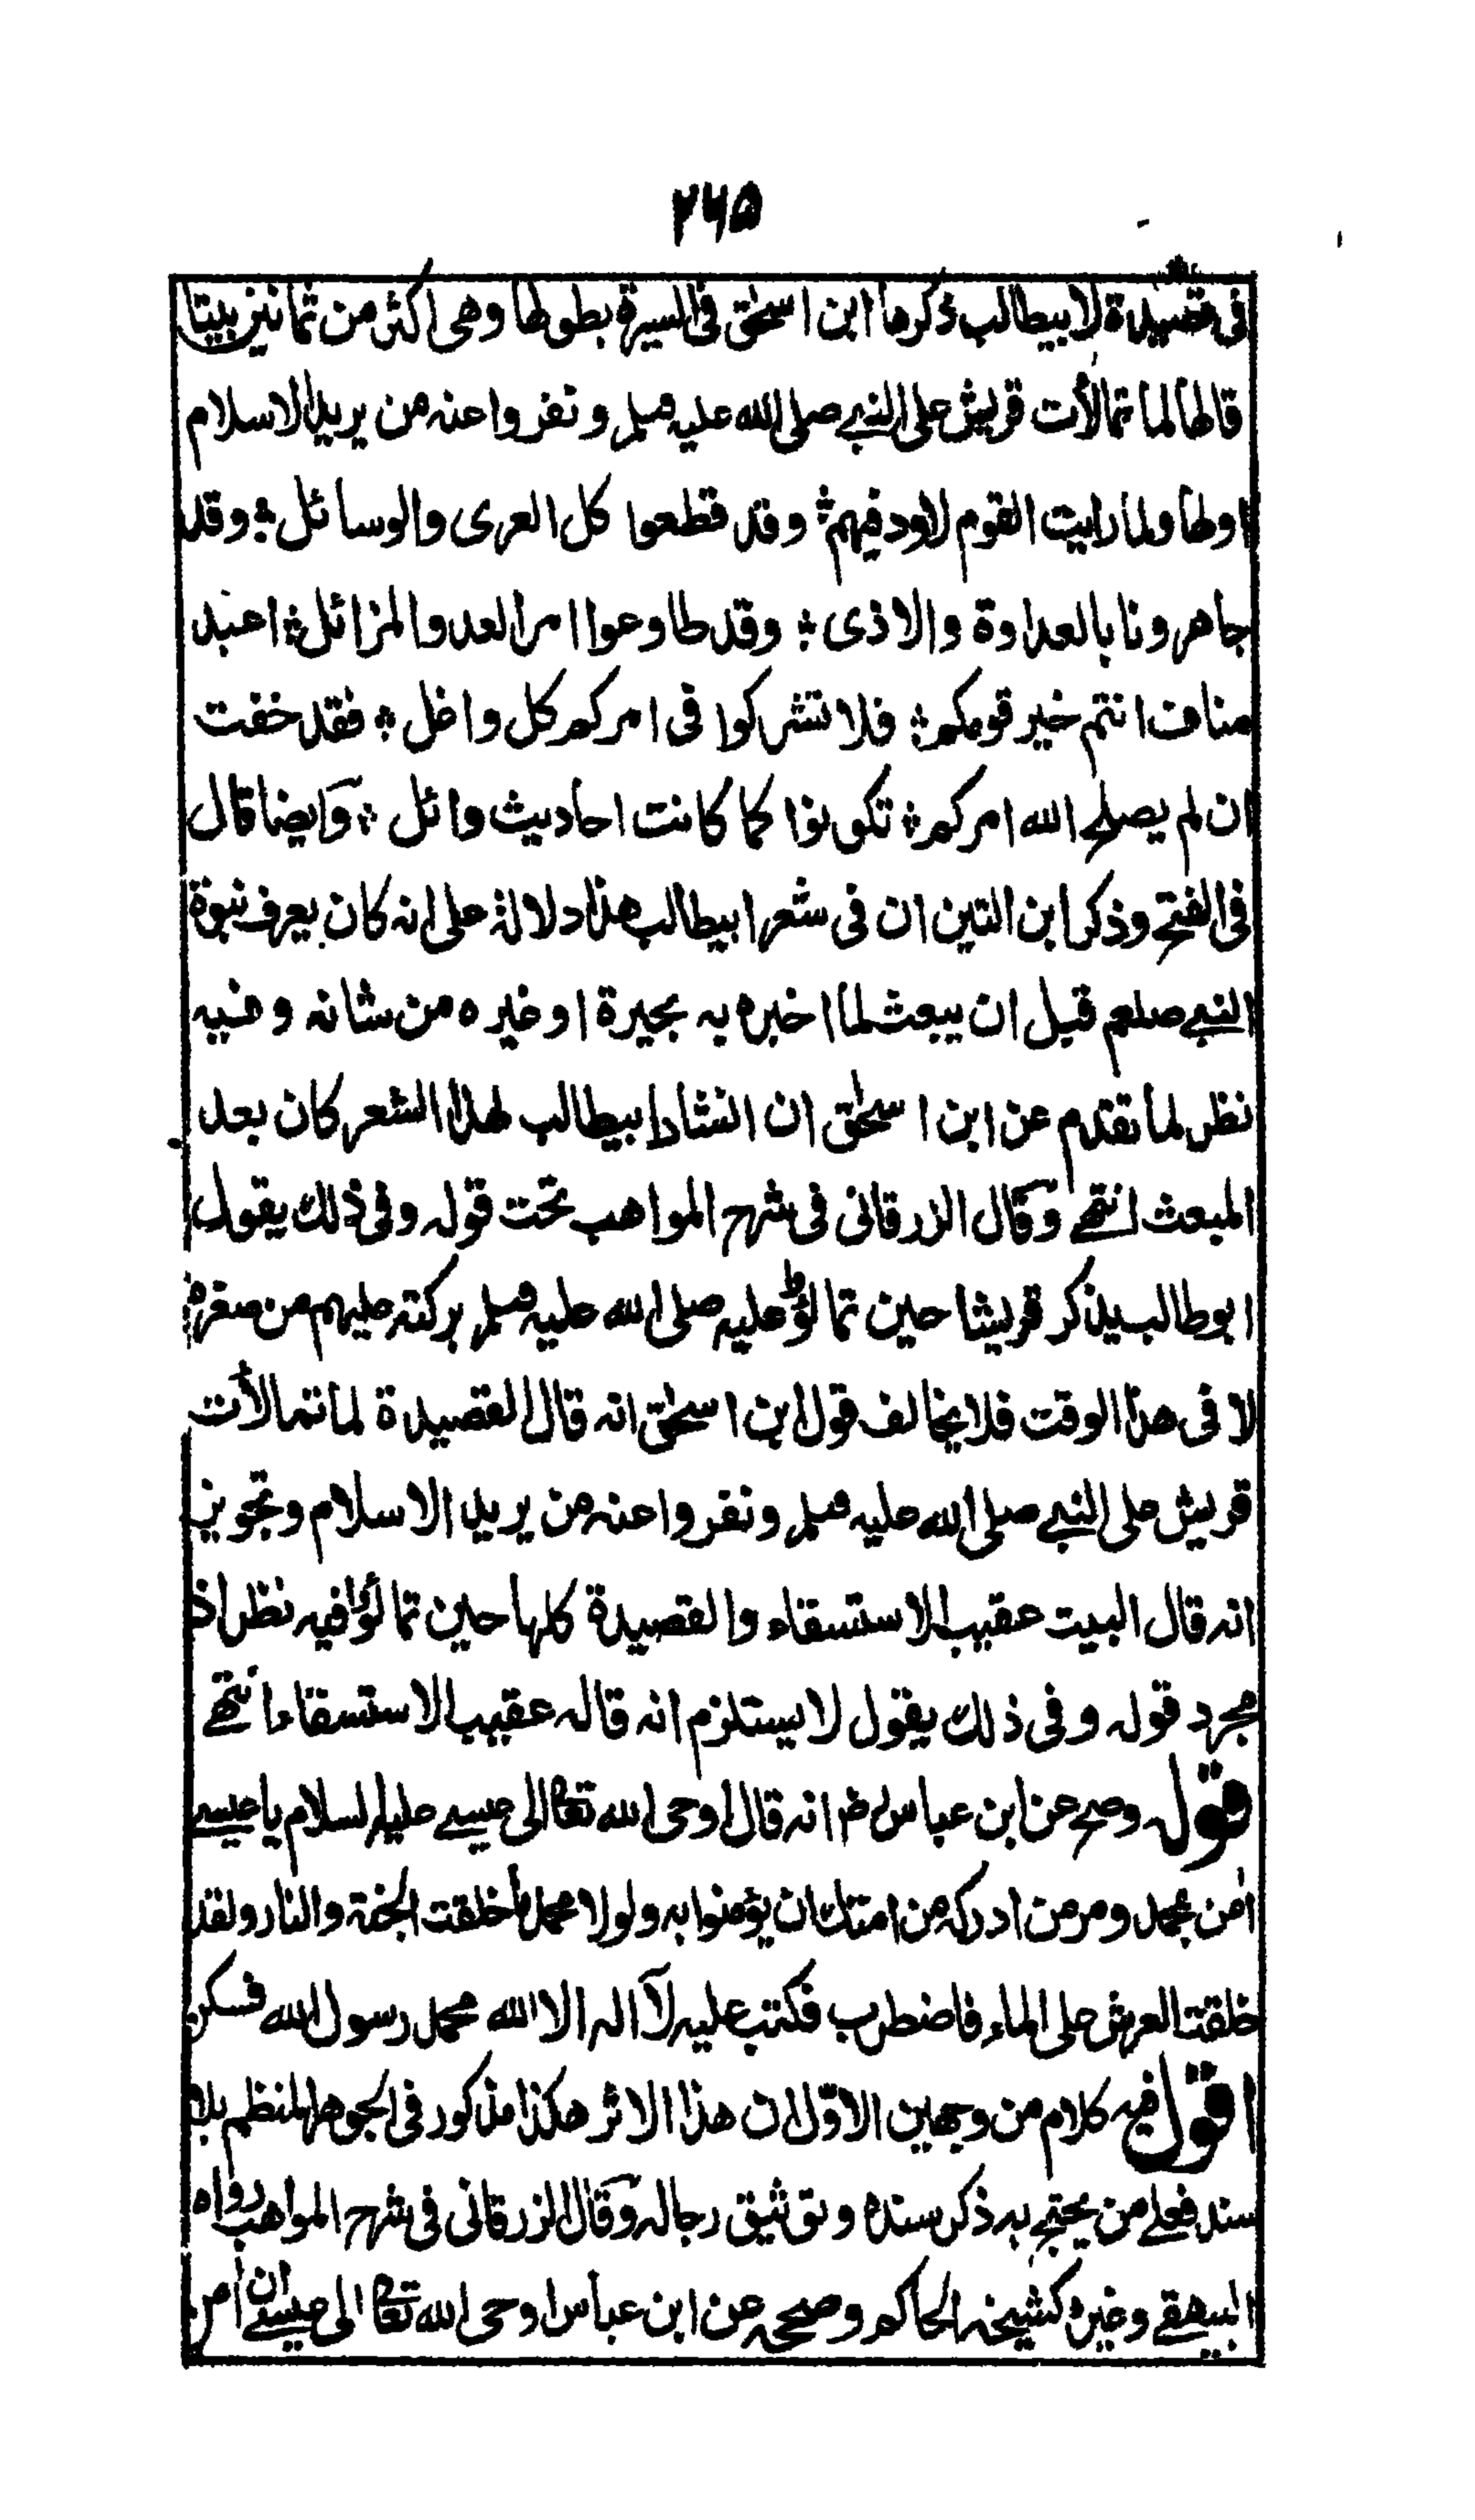 ٢٦٥
فى قصيدة لابيطالب ذكرها ابن اسحٰق فى السيرة بطولها وهى اكثر من ثمانين بيتا
قالها لما تمالأت قريش على النبے صلى الله عليه وسلم ونفروا عنه من يريد الاسلام
اولها ولما رايت القوم لاود فيهم ؛ وقد قطعوا كل العرى والوسائل ؛ وقد
جاهرونا بالعداوة والاذى ؛ وقد طاوعوا امر العدو المزائل ؛ اعبد
مناف انتم خير قومكم ؛ فلا تشركوا فى امركم كل واغل ؛ فقد خفت
ان لم يصلح الله امركم ؛ تكونوا كما كانت احاديث وائل ؛ وايضا قال
فى الفتح وذكر ابن التين ان فى شعر ابيطالب هذا دلالة على انه كان يعرف نبوة
النبے صلعم قبل ان يبعث لما اخبره به بحيرة او غيره من شانه وفيه
نظر لما تقدم عن ابن اسحٰق ان انشاد ابيطالب لهذا الشعر كان بعد
المبعث انتهے وقال الزرقانى فى شرح المواهب تحت قوله وفى ذلك يقول
ابوطالب يذكر قريشا حين تمالؤا عليه صلى الله عليه وسلم بركته عليهم من صغره
لا فى هذا الوقت فلا يخالف قول ابن اسحٰق انه قال القصيدة لما تمالأت
قريش على النبے صلى الله عليه وسلم ونفروا عنه من يريد الاسلام وتجويز
انه قال البيت عقيب الاستسقاء والقصيدة كلها حين تمالؤا فيه نظر اذ
مجرد قوله وفى ذلك يقول لا يستلزم انه قاله عقيب الاستسقاء انتهے
قوله وصح عن ابن عباس رض انه قال اوحى الله تعالى الى عيسے عليه السلام يا عيسے
اٰمن بمحمد ومر من ادركه من امتك ان يؤمنوا به ولولا محمد ما خلقت الجنة والنار ولقد
خلقت العرش على الماء فاضطرب فكتب عليه لآ اله الا الله محمد رسول الله فسكن
اقول فيه كلام من وجهين الاول ان هذا الاثر هكذا مذكور فى الجوهر المنظم بلا
سند فعلى من يحتج به ذكر سنده وتوثيق رجاله وقال الزرقانى فى شرح المواهب رواه
البيهقے وغيره كشيخه الحاكم وصححه عن ابن عباس اوحى الله تعالى الى عيسے ان اٰمن